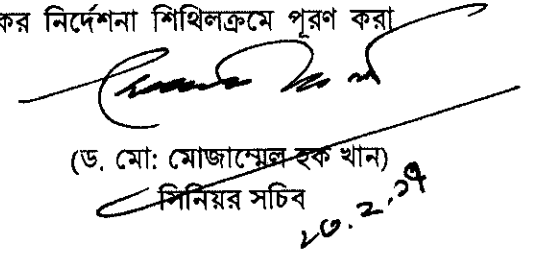 কর নির্দেশনা শিথিলক্রমে পূরণ করা
(ড. মো: মোজাম্মেল হক খান)
সিনিয়র সচিব
২৩.২.১৭